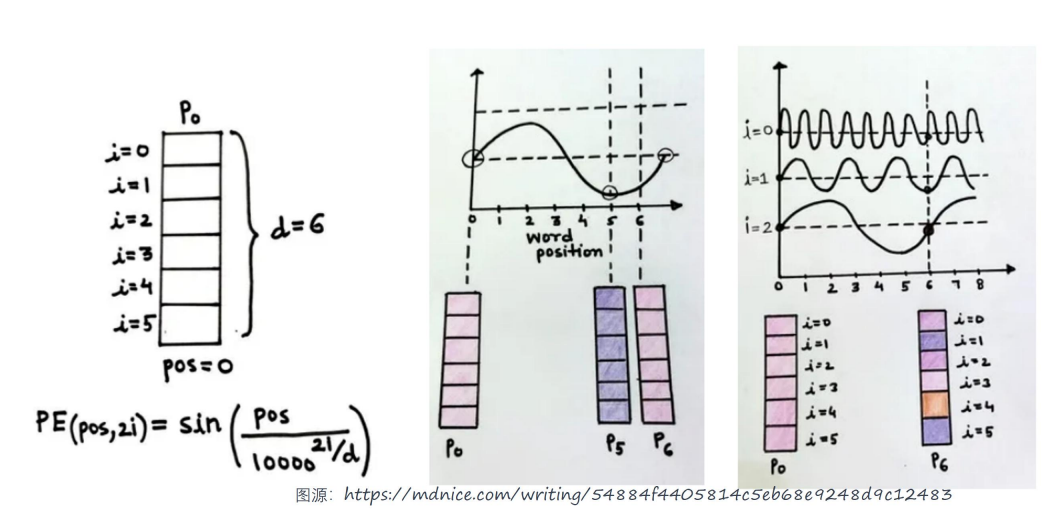 P0
i=0
i=1
i=2
i=3
i=4
i=5
d=6
pos=0
PE(pos,2i) = sin(pos/10000^2i/d)
0 1 2 3 4 5 6
word
position
P0 P5 P6
i=0
i=1
i=2
0 1 2 3 4 5 6 7 8
i=0
i=1
i=2
i=3
i=4
i=5
P0
i=0
i=1
i=2
i=3
i=4
i=5
P6
图源：https://mdnice.com/writing/54884f4405814c5eb68e9248d9c12483